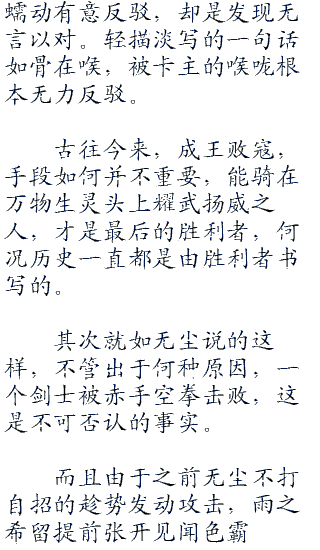 蠕动有意反驳，却是发现无
言以对。轻描淡写的一句话
如骨在喉，被卡主的喉咙根
本无力反驳。
古往今来，成王败寇，
手段如何并不重要，能骑在
万物生灵头上耀武扬威之
人，才是最后的胜利者，何
况历史一直都是由胜利者书
写的。
其次就如无尘说的这
样，不管出于何种原因，一
个剑士被赤手空拳击败，这
是不可否认的事实。
而且由于之前无尘不打
自招的趁势发动攻击，雨之
希留提前张开见闻色霸